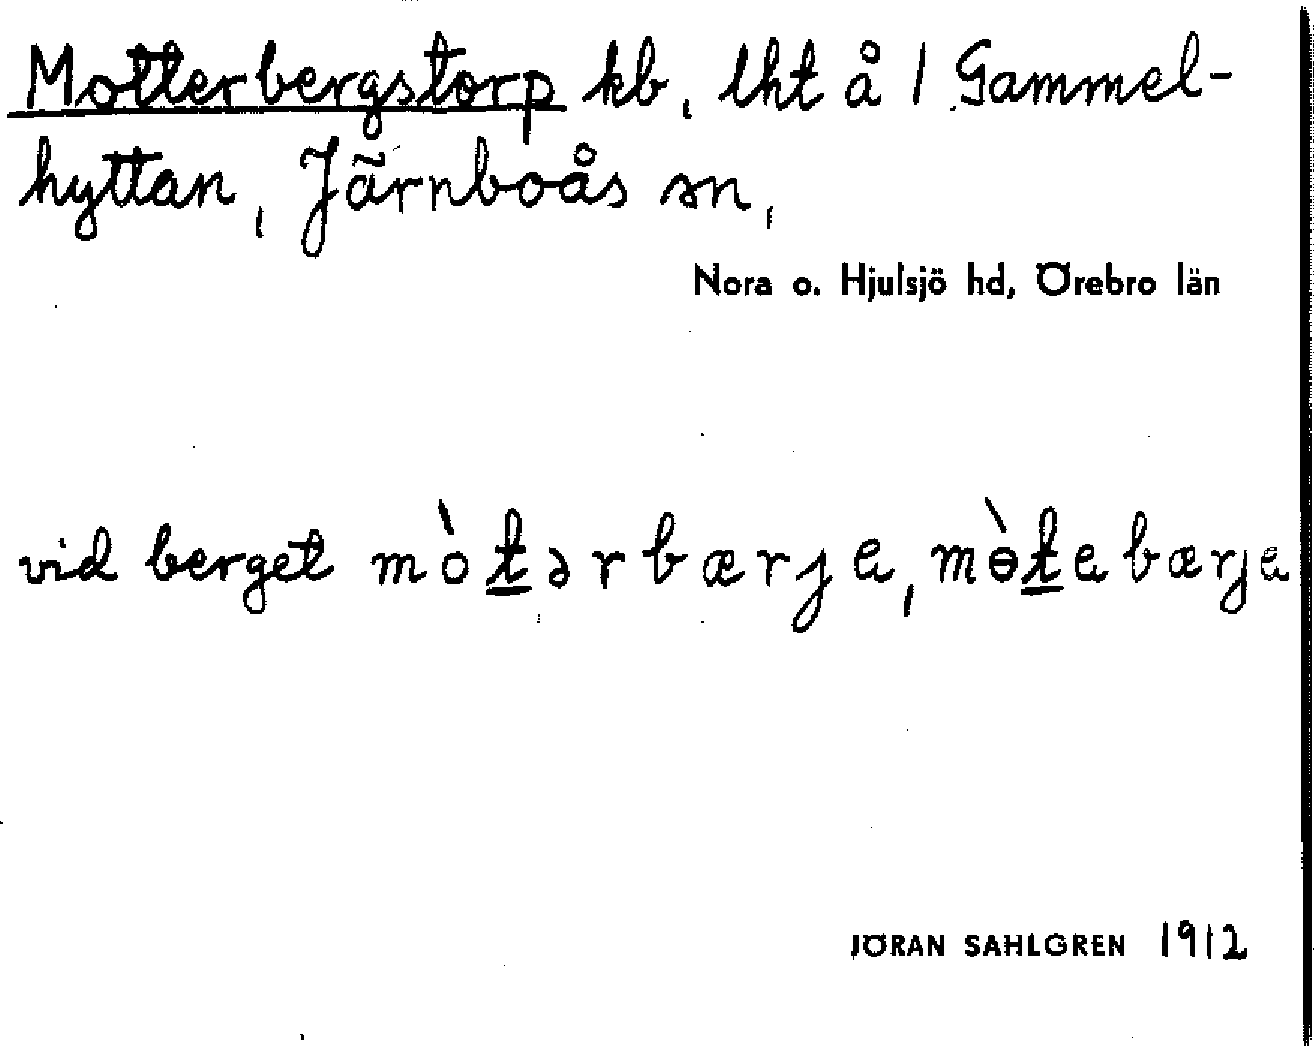 Motterbergstorp kb, lht å 1 Gammel-
hyttan, Järnboås sn,
Nora o. Hjulsjö hd, Örebro län
vid berget mòt̲ərbærje, mɵ̀t̲ebærje
JÖRAN SAHLGREN 1912